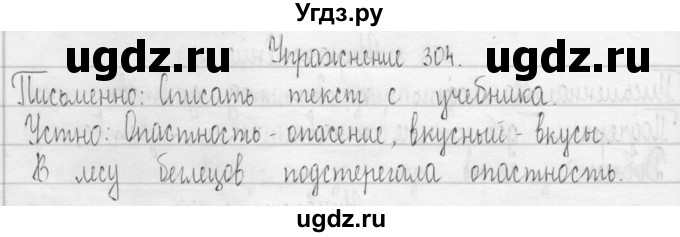 Угдз.ру
ugdz.ru ugdz.ru
Упражнение 304.
Письменно: Списать текст с учебника.
Устно: Опастность - опасение, вкусный - вкусы
В лесу беглецов подстерегала опастность.
ugdz.ru ugdz.ru
ugdz.ru